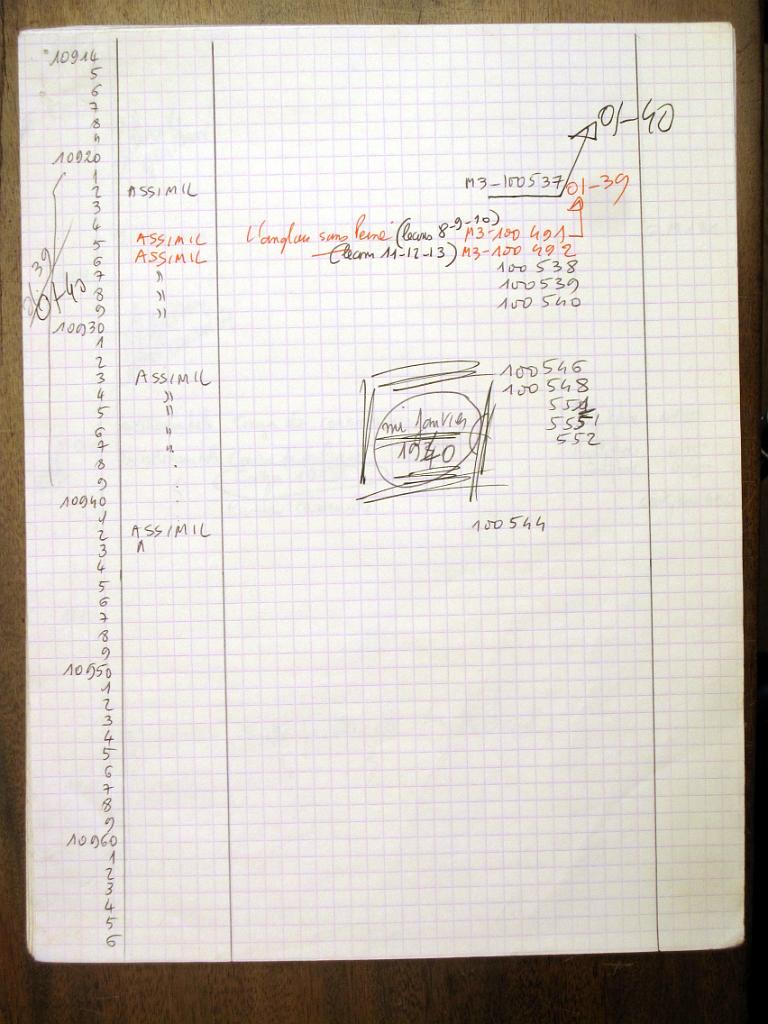 10914
5
6
7
8
9
01-40
10920
1
2 ASSIMIL M3-100537 01-39
3
4
5 ASSIMIL L'anglais sans Peine (leçons 8-9-10) M3-100 491
6 ASSIMIL (leçon 11-12-13) M3-100 492
7 " 100 538
8 " 100539
9 " 100 540
01-40
10930
1
2
3 ASSIMIL 100546
4 " 100548
5 "
6 " mi janvier 551
7 " 1940 552
8
9
10940
1
2 ASSIMIL 100544
3
4
5
6
7
8
9
10950
1
2
3
4
5
6
7
8
9
10960
1
2
3
4
5
6